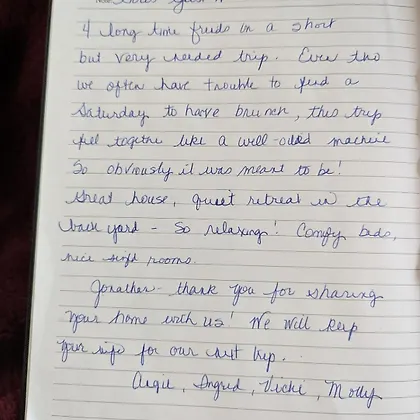 4 long time freids on a short
but very needed trip. Even tho
we often have trouble to find a
Saturday to have brunch, this trip
fell together like a well-oiled machine
So obviously it was meant to be!
Great house, quiet retreat in the
back yard - So relaxing! Comfy beds,
nice sized rooms.
Jonathan - thank you for sharing
your home with us! We will keep
your info for our next trip.
Angie, Ingrid, Vicki, Molly